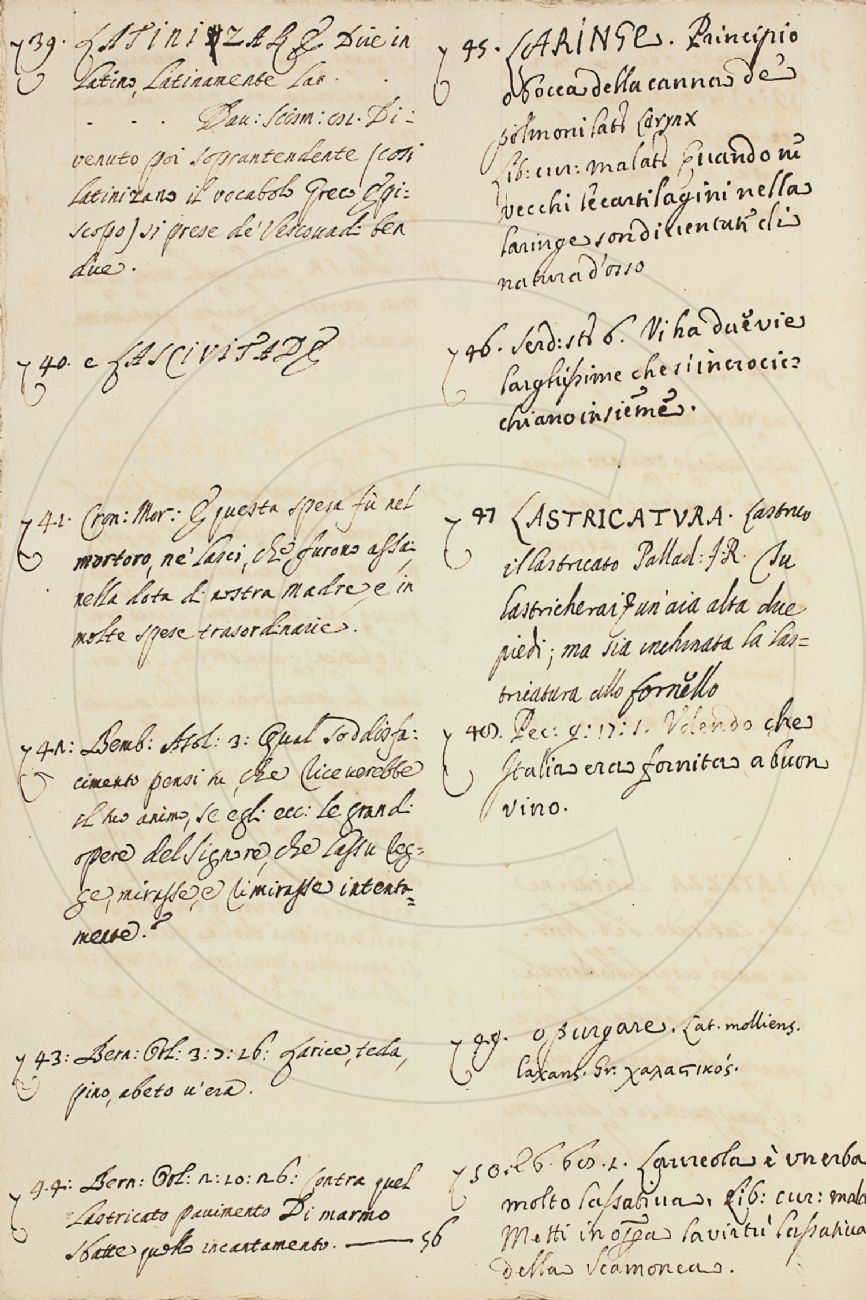 39. LATINIZARE Dire in
latino, Latinamente Lat.
Dav: Scism: Di:
venuto poi soprantendente (così
latinizano il vocabolo Greco Epi:
scopo) si prese de' Vescovadi ben
due.
40. e LASCIVITADE
41. Cron: Mor: E questa spesa fù nel
mortoro, ne' lasci, che furono assai
nella dota di nostra Madre, e in
molte spese trasordinarie.
42: Bemb: Asol: 3: Qual Soddisfa:
cimento pensi tu, che riceverebbe
il tuo animo, se egli ecc: le grandi
opere del Signore, che lassu reg=
ge, mirasse, e rimirasse intenta=
mente.?
43: Bern: Orl: 3: 7: 26: Larice, teda,
pino, abeto v'era.
44: Bern: Orl: 2: 10: 26: Contra quel
Lastricato pavimento Di marmo
Sbatte quello incantamento. — 56
45. LARINGE. Principio
o bocca della canna de'
polmoni lat. Larynx
Lib: cur: malatt. Quando ne'
vecchi le cartilagini nella
laringe son diventate di
natura d'osso
46. Serd: st. 6. Vi ha due vie
larghissime che si incrocic=
chiano insieme.
47 LASTRICATURA. Lastrico
il lastricato Pallad: F. R. Tu
lastricherai un'aia alta due
piedi; ma sia inchinata la las=
tricatura allo fornello
48. Pec: g: 17: 1. Vedendo che
Italia era fornita a buon
vino.
49. o purgare. Lat. molliens.
laxans. Gr. χαλαστικός.
50. Laureola è un erba
molto lassativa. Lib: cur: mala
Metti in opera la virtù lassativa
della scamonea.